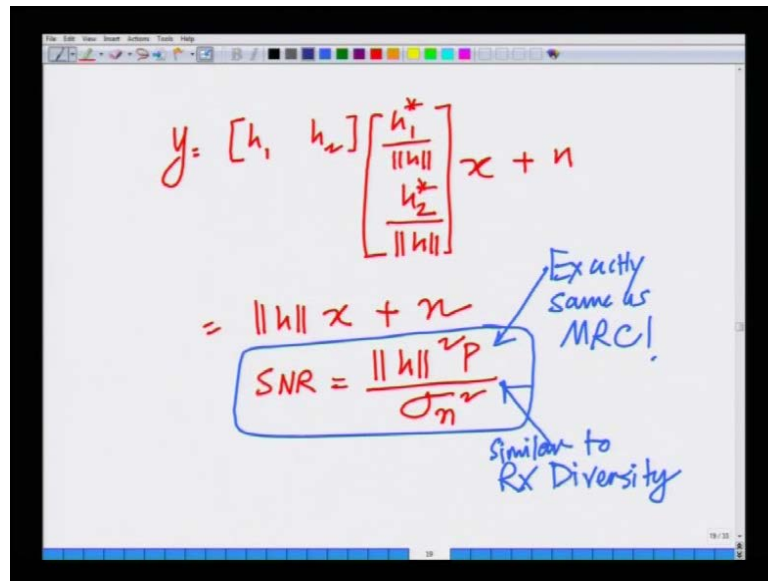 File Edit View Insert Actions Tools Help
y = [h₁ h₂] [h₁*/||h|| h₂*/||h||] x + n
= ||h|| x + n
SNR = ||h||² P / σₙ²
Exactly
same as
MRC!
Similar to
RX Diversity
19/33
19